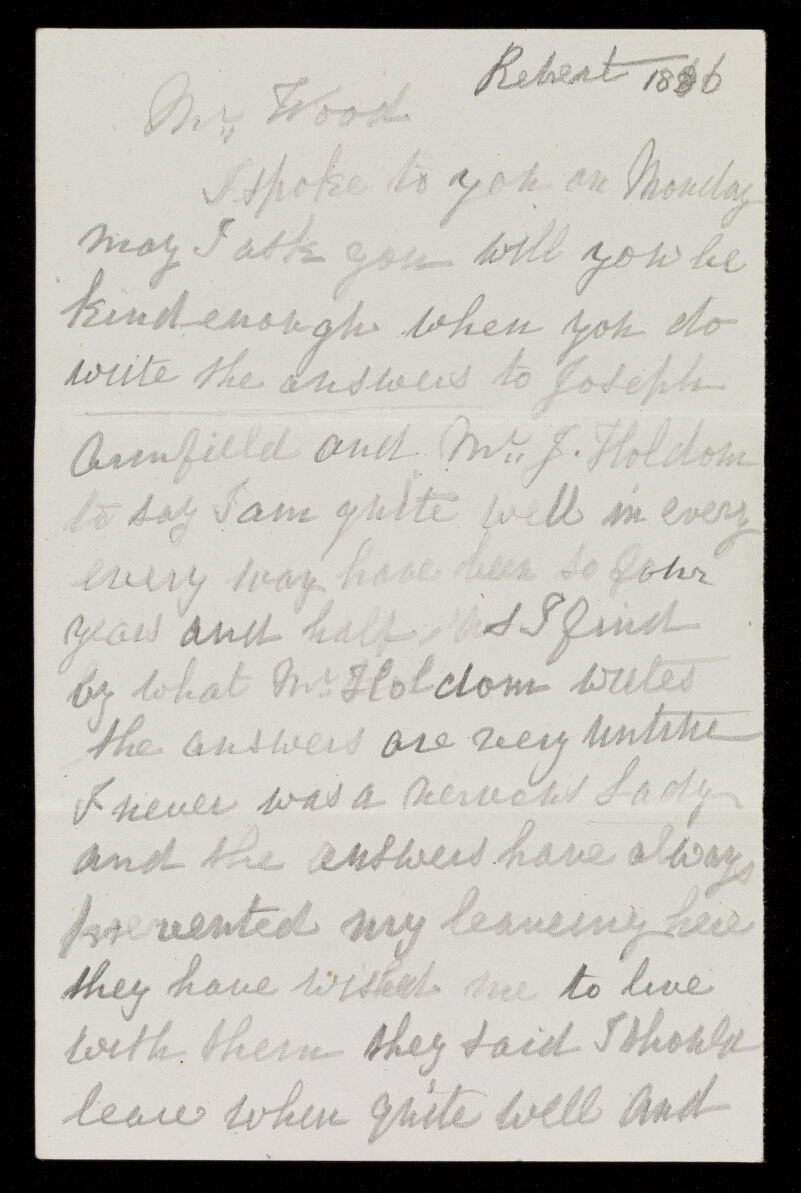 Rehert 1886
Mr,, Wood
I spoke to you on Monday
may I ask you will you be
kind enough when you do
write the answers to Joseph
Armfield and Mr,, J. Holdom
to say I am quite well in every
every way have been so four
years and half, As I find
by what Mr. Holdom writes
the answers are very untrue
I never was a nervous Lady
and the answers have always
prevented my leaveing here
they have wished me to live
with them they said I should
leave when quite well and